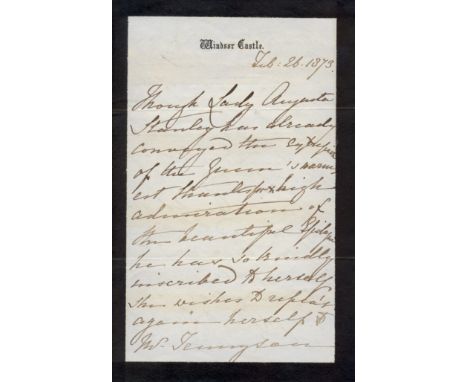 Windsor Castle.
Feb: 26. 1873.
Though Lady Augusta
Stanley has already
conveyed the expression
of the Queen's warm
est thanks & high
admiration of
the beautiful Epilogue
he has so kindly
inscribed to herself
She wishes to repeat
again herself to
Mr. Tennyson